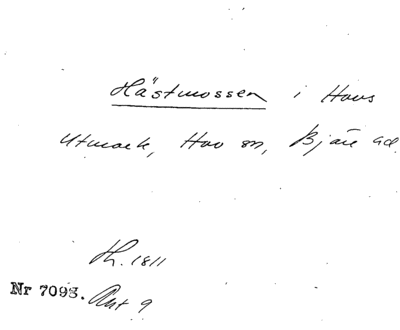 Hästmossen i Hovs
Utmark, Hov sn, Bjäre hd.
Th. 1811
Nr 7093. Akt 9